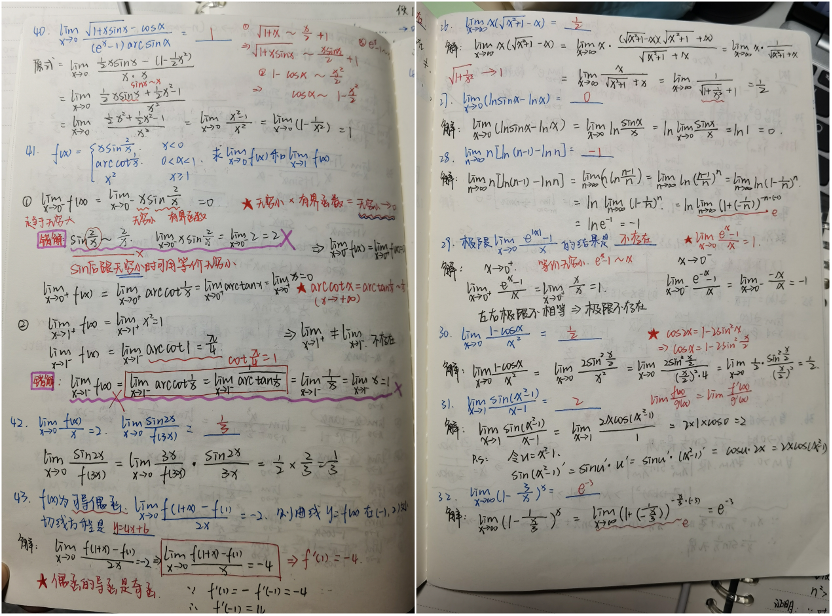 40. lim x→0 (√(1+xsinx) - cosx) / ((e^x-1) arcsinx) = 1
① √(1+x) ~ x/2 + 1
⇒ √(1+xsinx) ~ xsinx/2 + 1
② 1-cosx ~ x²/2
⇒ cosx ~ 1-x²/2
原式 = lim x→0 (½xsinx - (1-½x²)) / (x·x)
sinx~x
= lim x→0 (½xsinx + ½x² - 1) / x²
= lim x→0 (½x² + ½x² - 1) / x² = lim x→0 (x²-1)/x² = lim x→0 (1-1/x²) = 1
41. f(x) = { xsin 2/x x<0
arccot 1/x, 0<x<1, 求 lim x→0 f(x) 和 lim x→1 f(x)
x² x≥1
① lim x→0⁻ f(x) = lim x→0⁻ xsin 2/x = 0
★ 无穷小×有界函数=无穷小
无穷小 有界函数
错解 sin 2/x ~ 2/x. lim x→0 xsin 2/x = lim x→0 2 = 2 ×
⇒ lim x→0⁻ f(x) = lim x→0⁺ f(x)
sin后跟无穷小时可用等价无穷小
lim x→0⁺ f(x) = lim x→0⁺ arccot 1/x = lim x→0⁺ arctanx = lim x→0⁺ x = 0
★ arccotx = arctan 1/x
(x→+∞)
② lim x→1⁺ f(x) = lim x→1⁺ x² = 1
lim x→1⁻ f(x) = lim x→1⁻ arccot1 = π/4
⇒ lim x→1⁺ ≠ lim x→1⁻ 不存在
cot π/4 = 1
错解: lim x→1⁻ f(x) = lim x→1⁻ arccot 1/x = lim x→1⁻ arctan 1/x = lim x→1⁻ 1/x = lim x→1⁻ x = 1 ×
42. lim x→0 f(x)/x = 2. lim x→0 sin2x/f(3x) = 1/3
lim x→0 sin2x/f(3x) = lim x→0 3x/f(3x) · sin2x/3x = 1/2 × 2/3 = 1/3
43. f(x)为可导偶函 lim x→0 (f(1+x)-f(1))/2x = -2. 则曲线 y=f(x) 在(-1,2)处
切线方程是 y=4x+6
解: lim x→0 (f(1+x)-f(1))/2x = -2 ⇒ lim x→0 (f(1+x)-f(1))/x = -4 ⇒ f'(1) = -4.
★ 偶函的导函是奇函.
∵ f'(1) = -f'(-1) = -4
∴ f'(-1) = 4
lim x→∞ x(√(x²+1) - x) = 1/2
解: lim x→∞ x(√(x²+1) - x) = lim x→∞ x · (√(x²+1)-x)(√(x²+1)+x) / (√(x²+1)+x) = lim x→∞ x · 1/(√(x²+1)+x)
√(1+1/x²) → 1
= lim x→∞ x/(√(x²+1)+x) = lim x→∞ 1/(√(1+1/x²)+1) = 1/2
27. lim x→0 (lnsinx - lnx) = 0
解: lim x→0 (lnsinx - lnx) = lim x→0 ln sinx/x = ln lim x→0 sinx/x = ln1 = 0.
28. lim n→∞ n[ln(n-1) - lnn] = -1
解: lim n→∞ n[ln(n-1) - lnn] = lim n→∞ (n ln (n-1)/n) = lim n→∞ ln((n-1)/n)^n = lim n→∞ ln(1-1/n)^n
= ln lim n→∞ (1-1/n)^n. = ln lim n→∞ (1+(-1/n))^(-n·(-1))
e
= lne⁻¹ = -1
29. 极限 lim x→0 (e^|x|-1)/x 的结果是 不存在
★ lim x→0 (e^x-1)/x = 1.
解: x→0⁺ 等价无穷小. e^x-1 ~ x
x→0⁻
lim x→0⁺ (e^x-1)/x = lim x→0⁺ x/x = 1.
lim x→0⁻ (e^-x-1)/x = lim x→0⁻ -x/x = -1
左右极限不相等 ⇒ 极限不存在
30. lim x→0 (1-cosx)/x² = 1/2
★ cos2x = 1-2sin²x
⇒ cosx = 1-2sin² x/2
解: lim x→0 (1-cosx)/x² = lim x→0 2sin² x/2 / x² = lim x→0 2sin² x/2 / ((x/2)²·4) = lim x→0 1/2 · sin² x/2 / (x/2)² = 1/2.
31. lim x→1 sin(x²-1)/(x-1) = 2
lim f(x)/g(x) = lim f'(x)/g'(x)
解: lim x→1 sin(x²-1)/(x-1) = lim x→1 2xcos(x²-1)/1 = 2×1×cos0 = 2
P.S: 令u=x²-1.
sin(x²-1)' = sinu'·u' = sinu'·(x²-1)' = cosu·2x = 2xcos(x²-1)
32. lim x→∞ (1-3/x)^x = e⁻³
解: lim x→∞ (1-1/(x/3))^x = lim x→∞ (1+(-1/(x/3)))^(-x/3·(-3)) = e⁻³
e